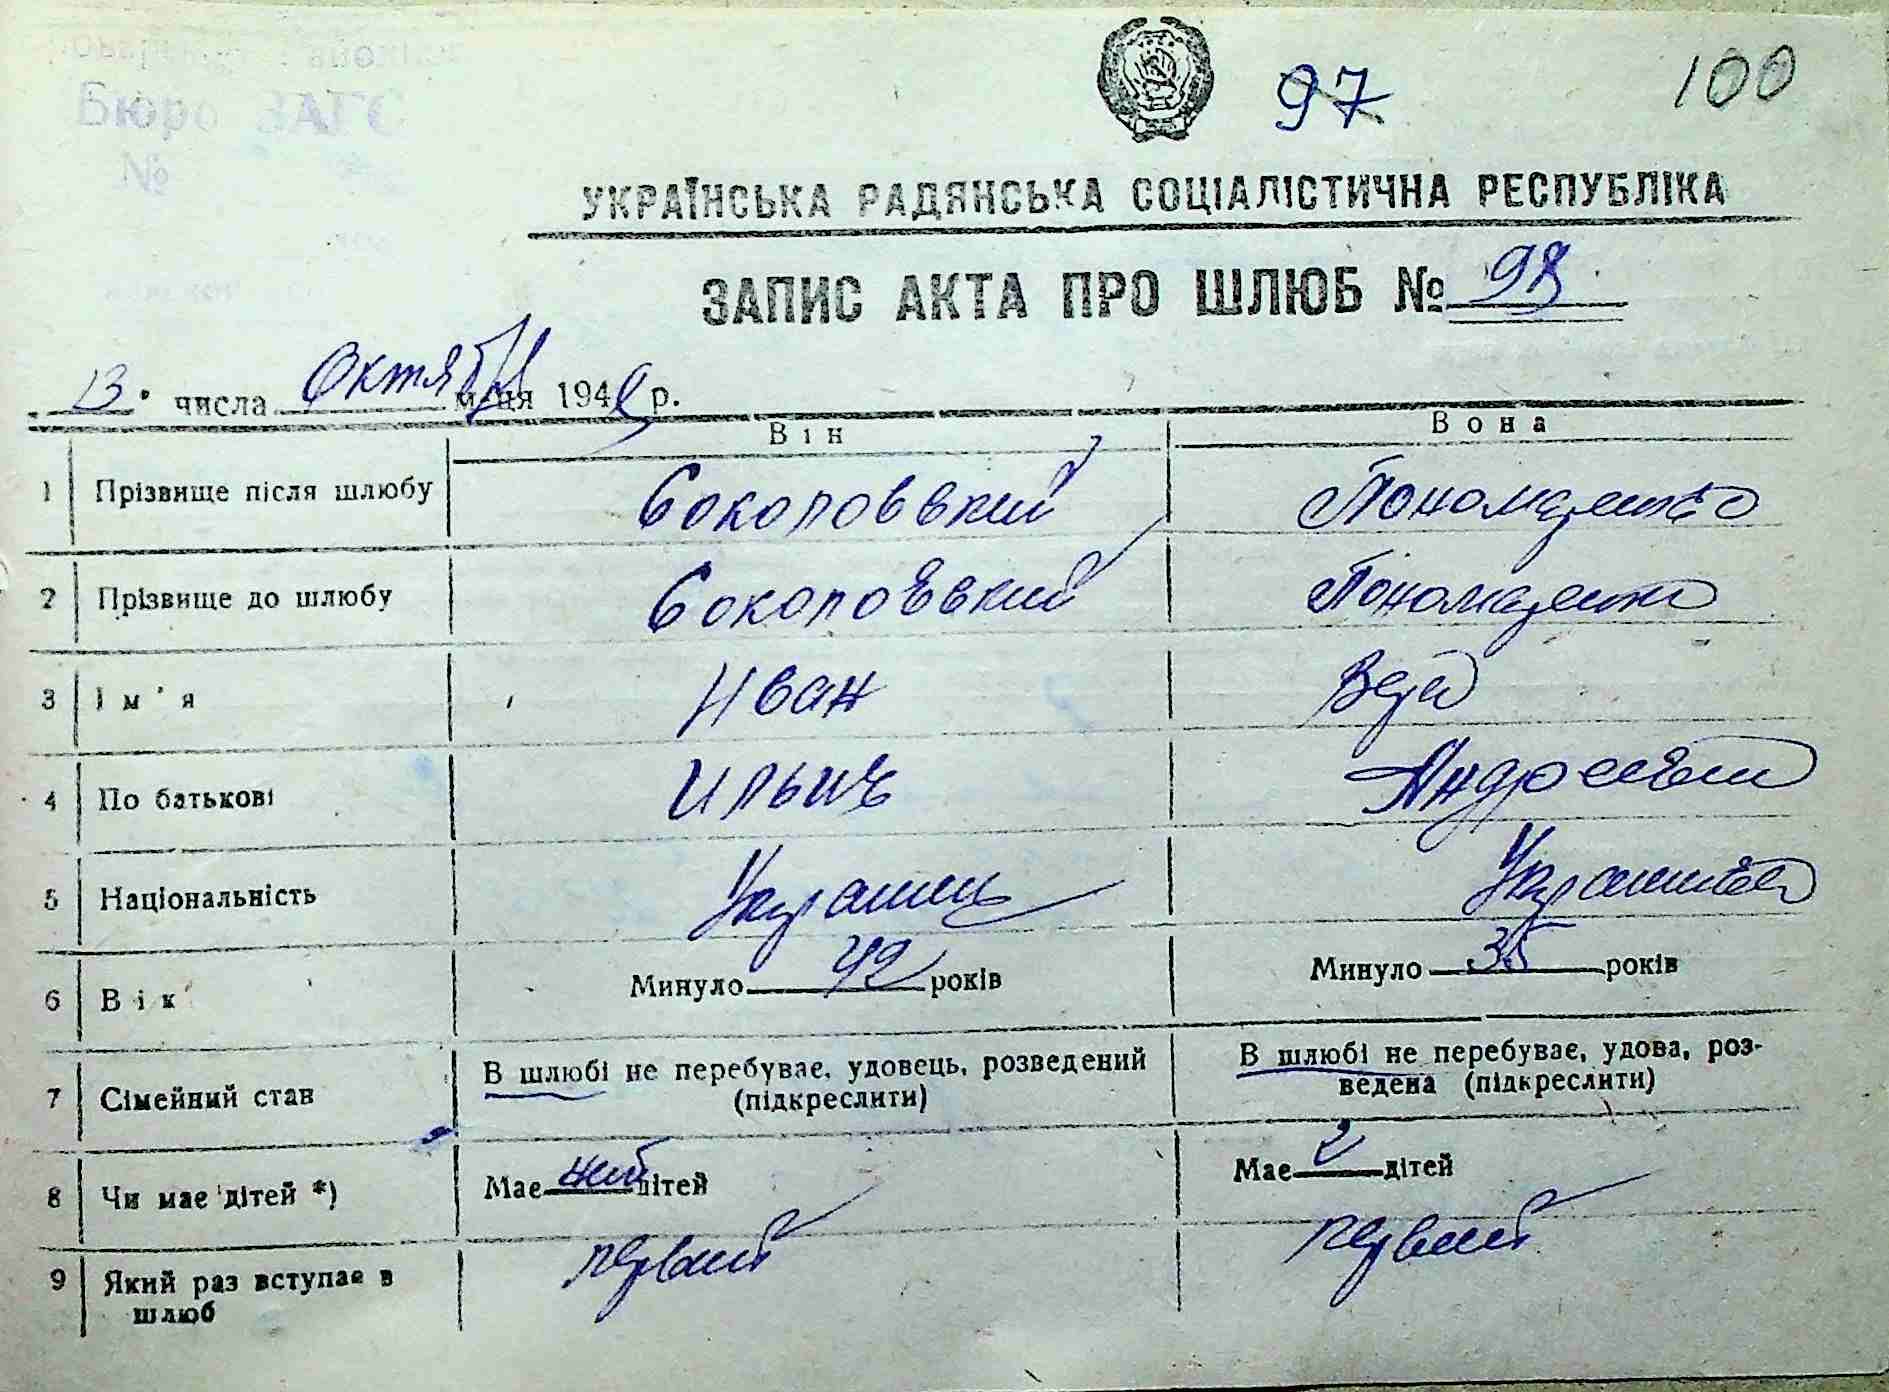 97
100
Бюро ЗАГС
№
УКРАЇНСЬКА РАДЯНСЬКА СОЦІАЛІСТИЧНА РЕСПУБЛІКА
ЗАПИС АКТА ПРО ШЛЮБ № 98
13 числа Октября м-ця 194 р.
Він Вона
1 Прізвище після шлюбу Соколовский Пономаренко
2 Прізвище до шлюбу Соколовский Пономаренко
3 Ім'я Иван Вера
4 По батькові Ильич
5 Національність Украинец Украинка
6 Вік Минуло 42 років Минуло 35 років
7 Сімейний став В шлюбі не перебуває, удовець, розведений (підкреслити) В шлюбі не перебуває, удова, роз-
ведена (підкреслити)
8 Чи має дітей *) Має нет дітей Має 2 дітей
9 Який раз вступає в шлюб первый первый